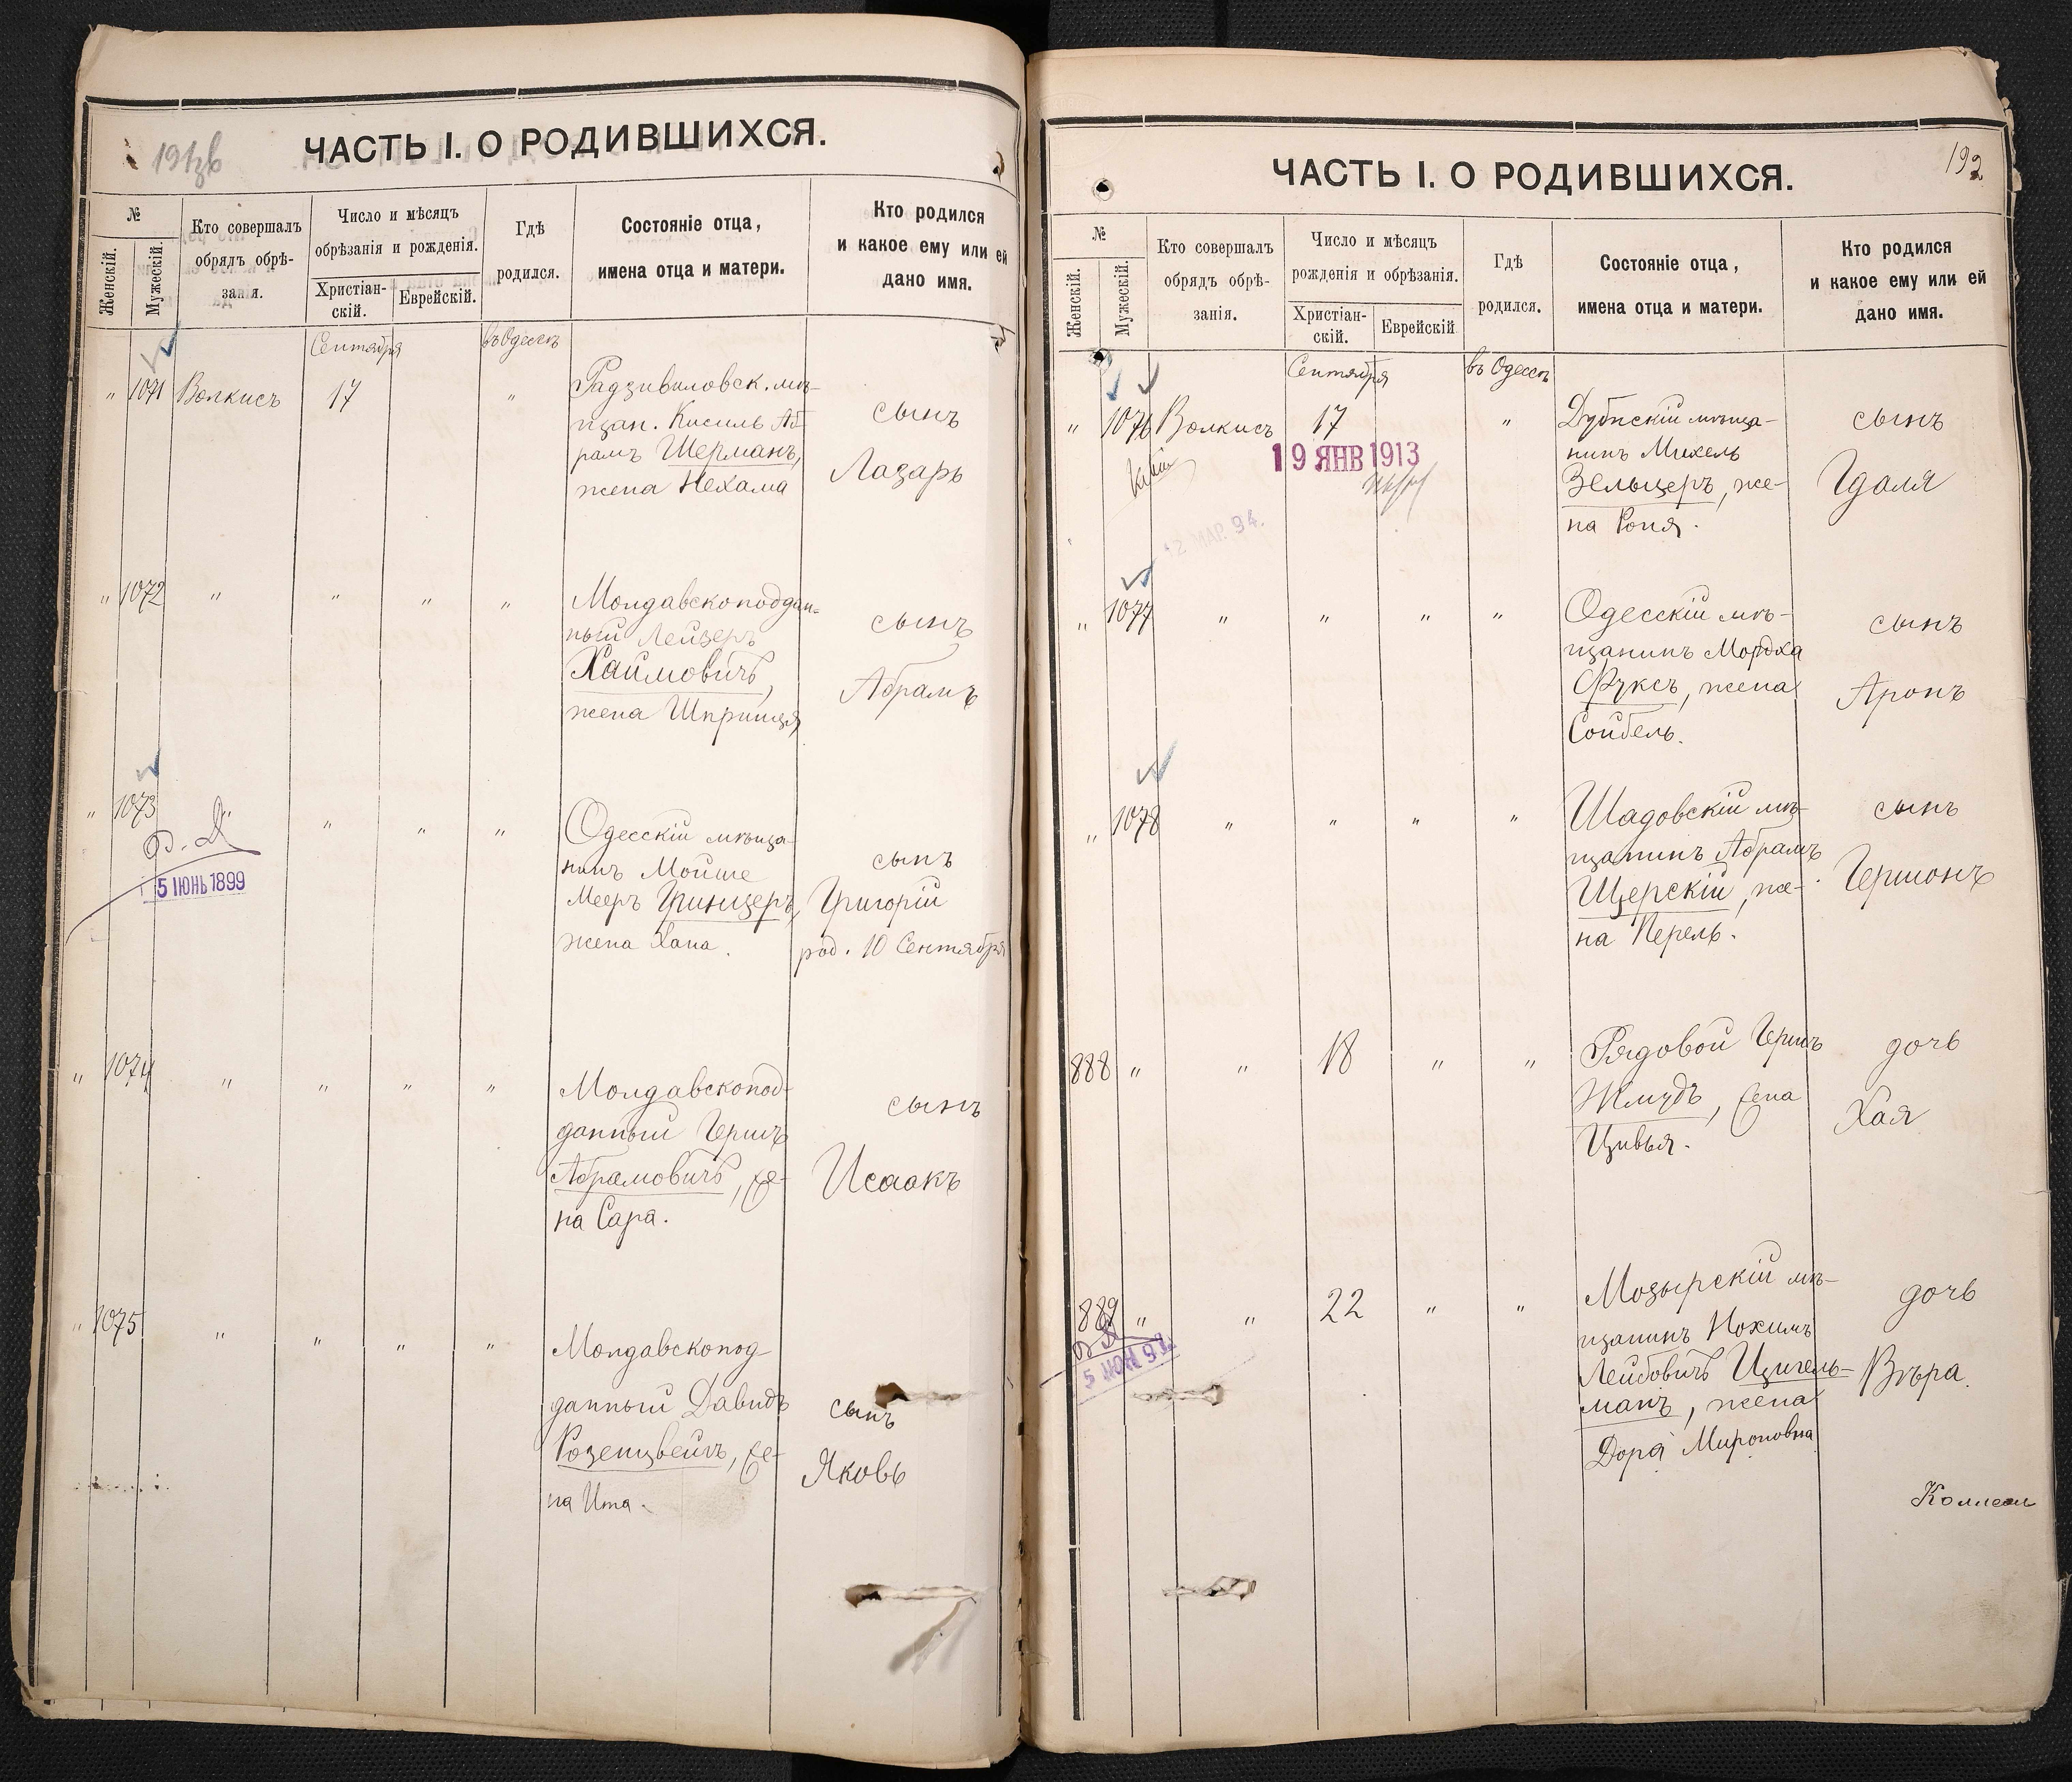 191 зв
ЧАСТЬ I. О РОДИВШИХСЯ.
№
Женскій.
Мужескій.
Кто совершалъ
обрядъ обрѣ-
занія.
Число и мѣсяцъ
обрѣзанія и рожденія.
Христіан-
скій.
Еврейскій.
Гдѣ
родился.
Состояніе отца,
имена отца и матери.
Кто родился
и какое ему или ей
дано имя.
Сентября
въ Одессѣ
" 1071 Волкисъ 17 "
Радзивиловск. мѣ-
щан. Кисиль Аб-
рамъ Шерманъ,
жена Нехама
сынъ
Лазарь
" 1072 " " " "
Молдавскоподдан-
ный Лейзеръ
Хаймовичъ,
жена Шпринця
сынъ
Абрамъ
" 1073 " " " "
5 ІЮНЬ 1899
Одесскій мѣща-
нинъ Мойше
Мееръ Гринцеръ,
жена Хана.
сынъ
Григорій
род. 10 Сентября
" 1074 " " " "
Молдавскопод-
данный Гершъ
Абрамовичъ, же-
на Сара.
сынъ
Исаакъ
" 1075 " " " "
Молдавскопод-
данный Давидъ
Розенцвейгъ, же-
на Ита.
сынъ
Яковъ
192
ЧАСТЬ I. О РОДИВШИХСЯ.
№
Женскій.
Мужескій.
Кто совершалъ
обрядъ обрѣ-
занія.
Число и мѣсяцъ
рожденія и обрѣзанія.
Христіан-
скій.
Еврейскій
Гдѣ
родился.
Состояніе отца,
имена отца и матери.
Кто родился
и какое ему или ей
дано имя.
Сентября
въ Одессѣ
" 1076 Волкисъ 17 "
19 ЯНВ 1913
2 МАР. 94.
Дубнскій мѣща-
нинъ Михель
Зельцеръ, же-
на Роня.
сынъ
Гдаля
" 1077 " " " "
Одесскій мѣ-
щанинъ Мордха
Фуксъ, жена
Сойбель.
сынъ
Аронъ
" 1078 " " " "
Шадовскій мѣ-
щанинъ Абрамъ
Щерскій, же-
на Перель.
сынъ
Гершонъ
888 " " 18 " "
Рядовой Гершъ
Жмудъ, жена
Цивья.
дочь
Хая
889 " " 22 " "
Мозырскій мѣ-
щанинъ Нохимъ
Лейбовичъ Цигель-
манъ, жена
Дора Мироновна
дочь
Вѣра.